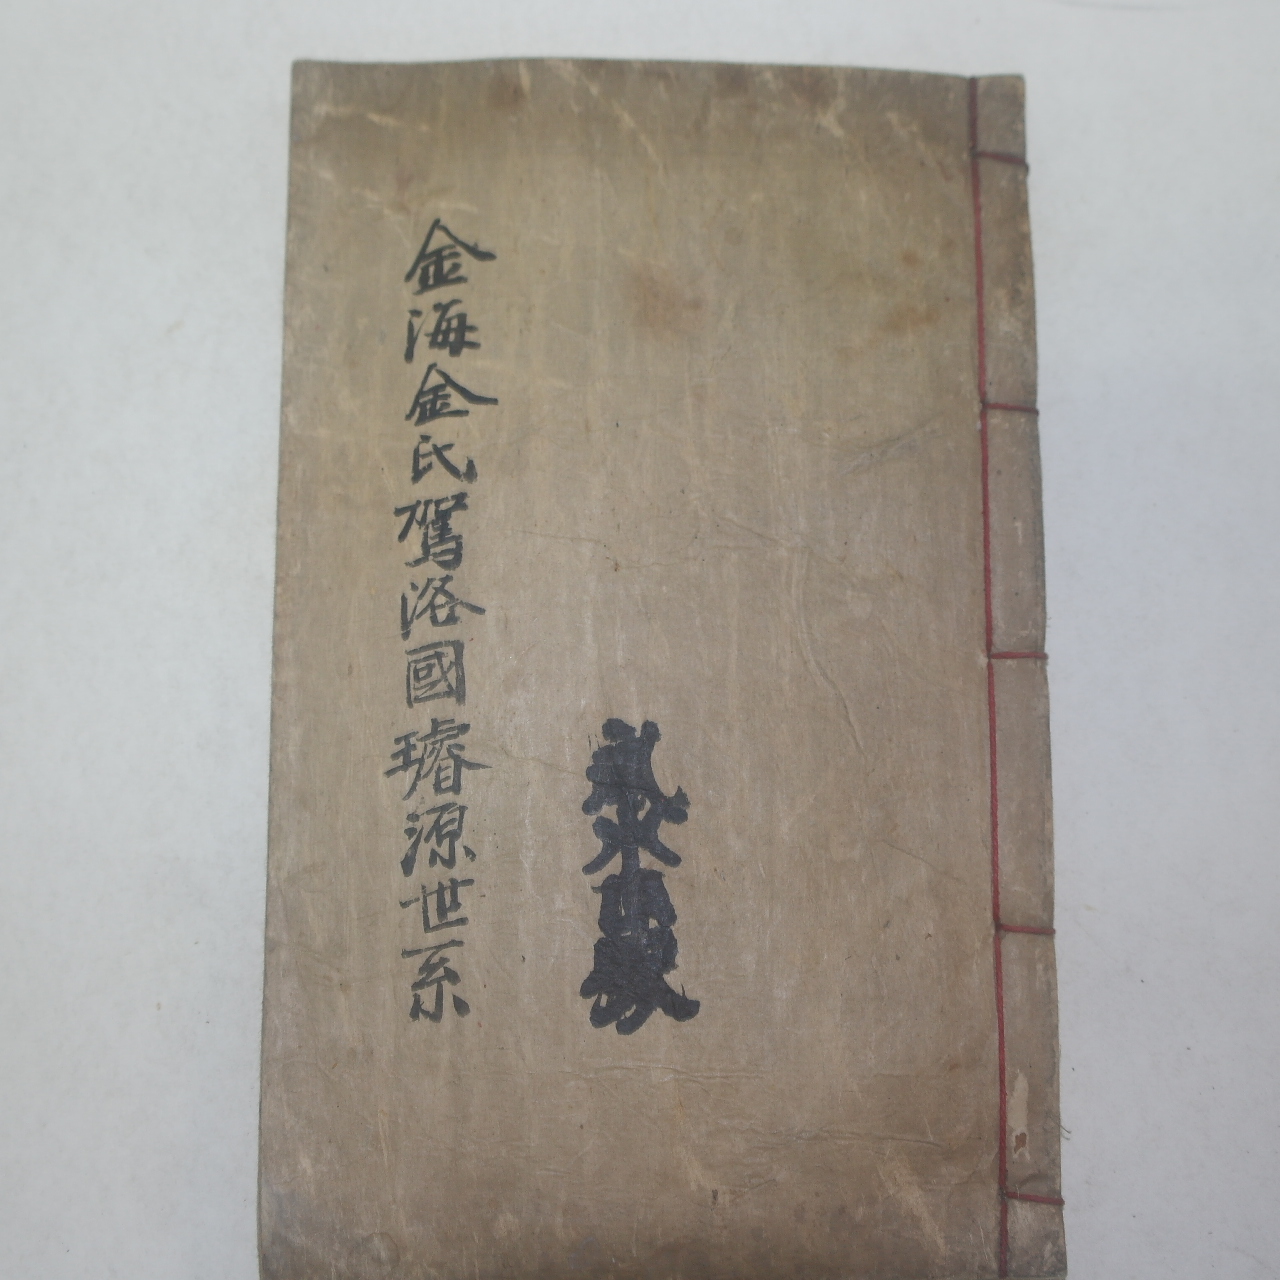 金海金氏駕洛國璿源世系